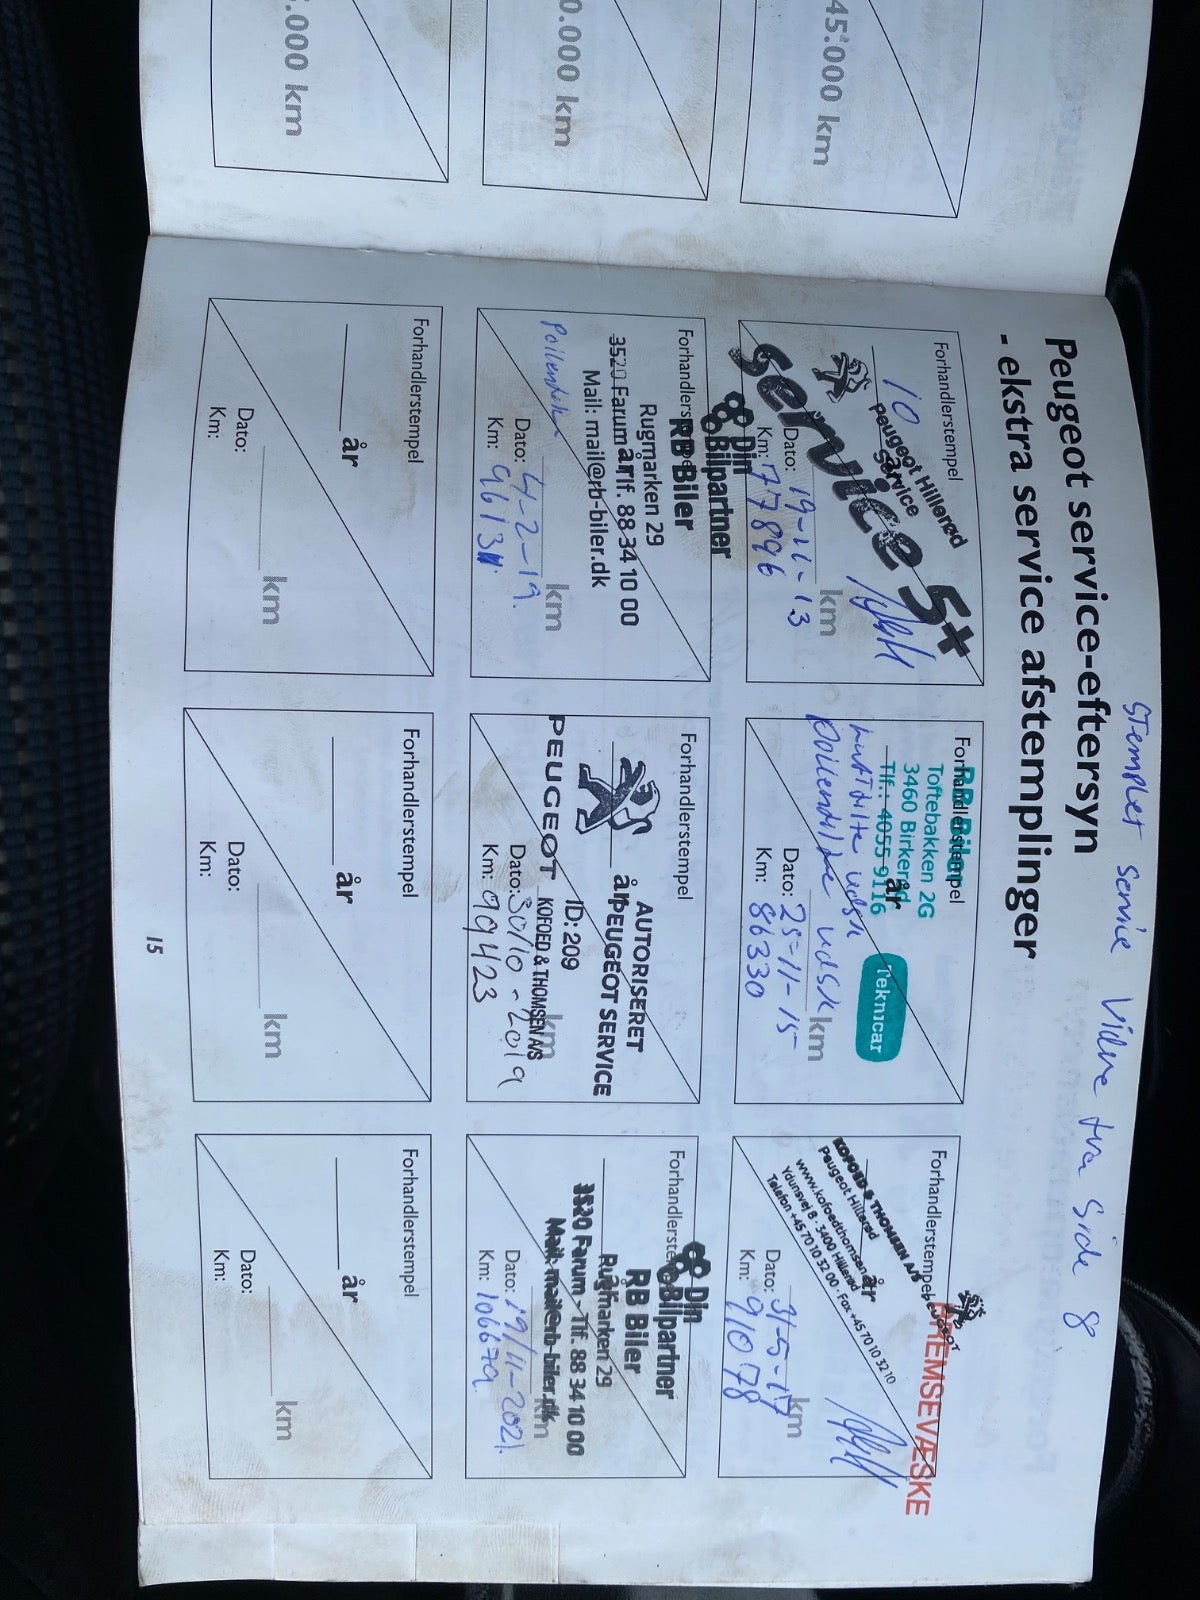 stemplet service videre fra side 8
Peugeot service-eftersyn
- ekstra service afstemplinger
Forhandlerstempel
10
år
Peugeot Hillerød
Service
Service 5+
km
Dato: 19-11-13
Km: 77896
Forhandlerstempel
RB Biler
Toftebakken 2G
3460 Birkerød
Tlf.: 4055 9116
Teknicar
år
Luftfilter udsk
Pollenfilter udsk
km
Dato: 25-11-15
Km: 86330
Forhandlerstempel
PEUGEOT
BREMSEVÆSKE
KOFOED & THOMSEN A/S
Peugeot Hillerød
www.kofoedthomsen
Ydunsvej 8 · 3400 Hillerød
Telefon +45 70 10 32 00 · Fax +45 70 10 32 10
år
km
Dato: 31-5-17
Km: 91078
Forhandlerstempel
Din
Bilpartner
RB Biler
Rugmarken 29
3520 Farum Tlf. 88 34 10 00
Mail: mail@rb-biler.dk
år
Pollenfilter
km
Dato: 4-2-19
Km: 96131
Forhandlerstempel
AUTORISERET
PEUGEOT SERVICE
år
ID: 209
PEUGEOT KOFOED & THOMSEN A/S
km
Dato: 30/10-2019
Km: 99423
Forhandlerstempel
Din
Bilpartner
RB Biler
Rugmarken 29
3520 Farum - Tlf. 88 34 10 00
Mail: mail@rb-biler.dk
km
Dato: 19/11-2021
Km: 106679
Forhandlerstempel
år
km
Dato:
Km:
Forhandlerstempel
år
km
Dato:
Km:
Forhandlerstempel
år
km
Dato:
Km:
15
45.000 km
0.000 km
.000 km